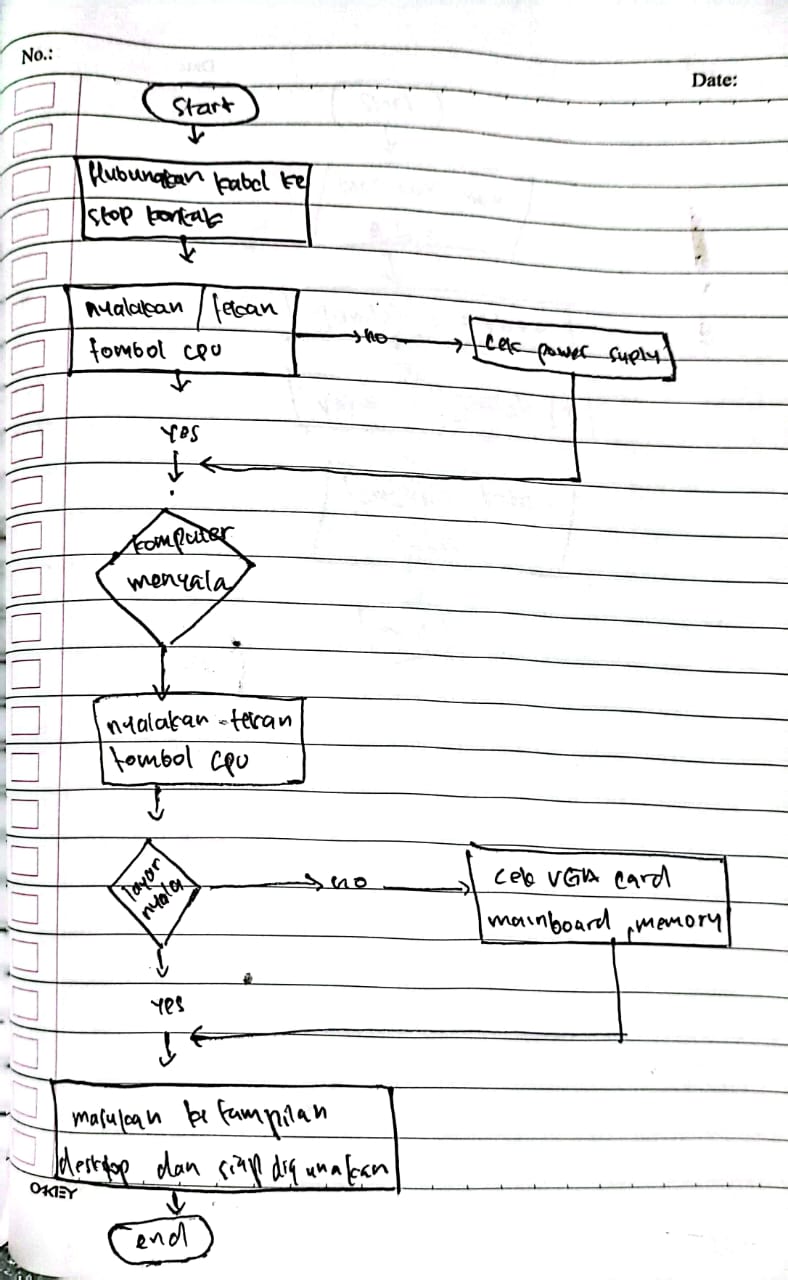 No.:
Date:
Start
Hubungkan kabel ke
stop kontak
nyalakan / tekan
tombol cpu
no
cek power suply
yes
komputer
menyala
nyalakan - tekan
tombol cpu
layar
nyala
no
cek VGA card
mainboard , memory
yes
masukan ke tampilan
desktop dan siap digunakan
OKEY
end